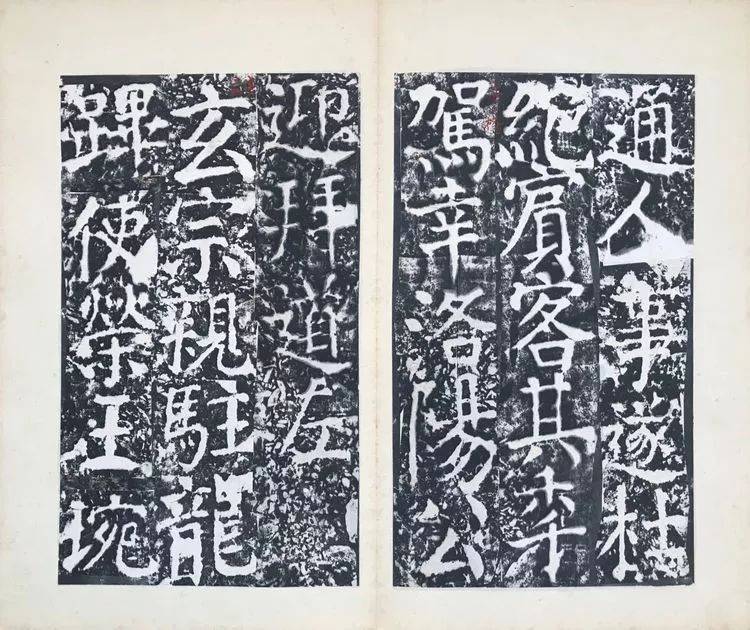 通人事遂杜
絕賓客其秊
駕幸洛陽公
迎拜道左
玄宗親駐龍
蹕使榮王琬